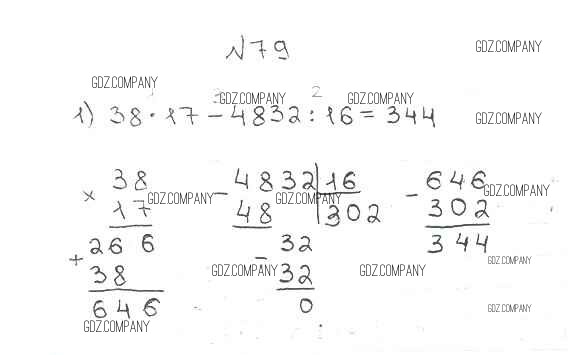 N79
GDZ.COMPANY
GDZ.COMPANY
GDZ.COMPANY
GDZ.COMPANY
2
1) 38 · 17 - 4832 : 16 = 344
GDZ.COMPANY
× 38
17
GDZ.COMPANY
266
+
38
646
GDZ.COMPANY
- 4832 16
48 302
GDZ.COMPANY
- 32
32
0
GDZ.COMPANY
GDZ.COMPANY
- 646
302
344
GDZ.COMPANY
GDZ.COMPANY
GDZ.COMPANY